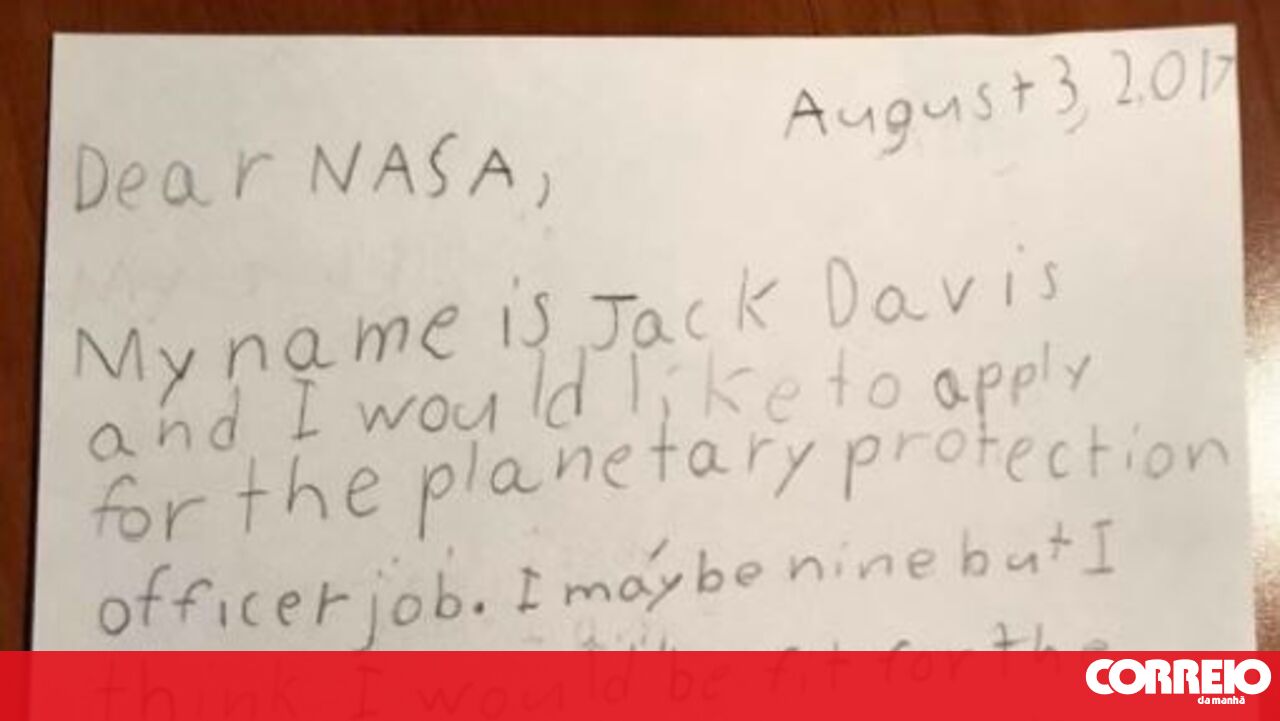 August 3, 2017
Dear NASA,
My name is Jack Davis
and I would like to apply
for the planetary protection
officer job. I may be nine but I
think I would be fit for the
CORREIO
da manhã